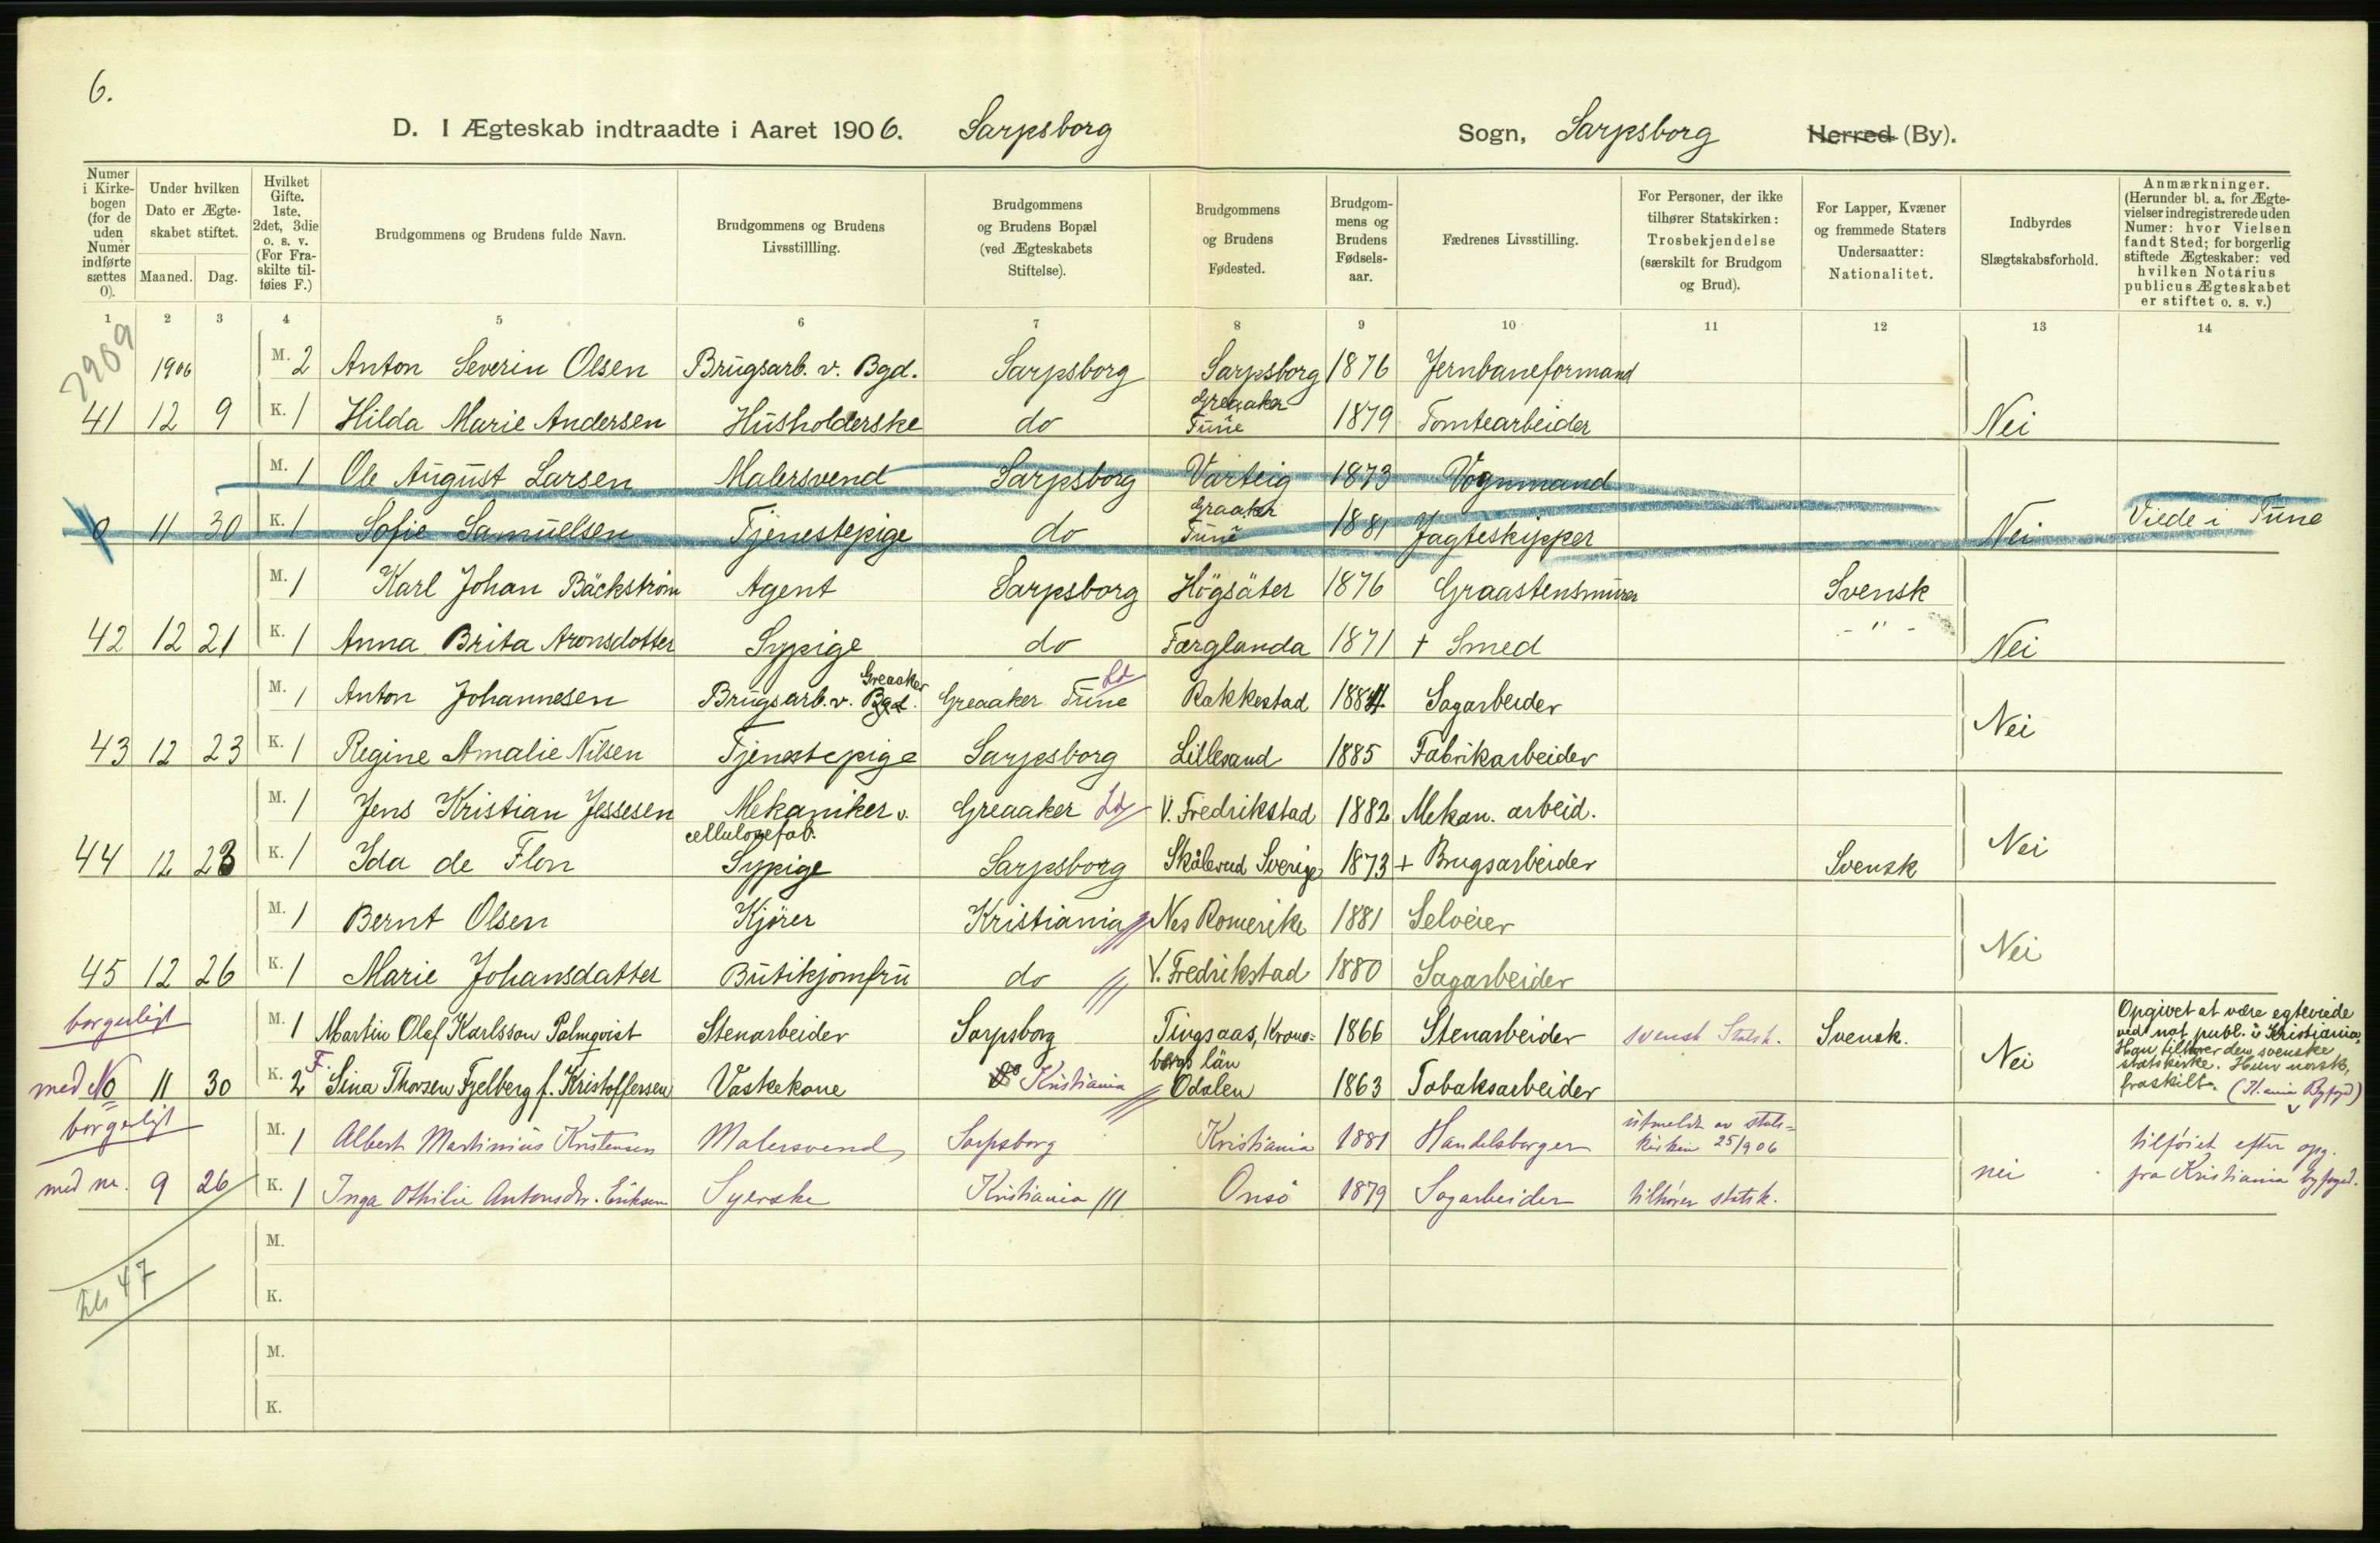 6.
D. I Ægteskab indtraadte i Aaret 1906. Sarpsborg Sogn, Sarpsborg Herred (By).
Numer i Kirkebogen (for de uden Numer indførte sættes 0).
Under hvilken Dato er Ægteskabet stiftet.
Maaned. Dag.
Hvilket Gifte. 1ste, 2det, 3die o. s. v. (For Fraskilte tilføies F.)
Brudgommens og Brudens fulde Navn.
Brudgommens og Brudens Livsstillling.
Brudgommens og Brudens Bopæl (ved Ægteskabets Stiftelse).
Brudgommens og Brudens Fødested.
Brudgommens og Brudens Fødselsaar.
Fædrenes Livsstilling.
For Personer, der ikke tilhører Statskirken: Trosbekjendelse (særskilt for Brudgom og Brud).
For Lapper, Kvæner og fremmede Staters Undersaatter: Nationalitet.
Indbyrdes Slægtskabsforhold.
Anmærkninger. (Herunder bl. a. for Ægtevielser indregistrerede uden Numer: hvor Vielsen fandt Sted; for borgerlig stiftede Ægteskaber: ved hvilken Notarius publicus Ægteskabet er stiftet o. s. v.)
1 2 3 4 5 6 7 8 9 10 11 12 13 14
2909
1906 M. 2 Anton Severin Olsen Brugsarb. v. Bgd. Sarpsborg Sarpsborg 1876 Jernbaneformand
41 12 9 K. 1 Hilda Marie Andersen Husholderske do Greaaker Tune 1879 Tomtearbeider Nei
M. 1 Ole August Larsen Malersvend Sarpsborg Varteig 1873 Vognmand
0 11 30 K. 1 Sofie Samuelsen Tjenestepige do Graaker Tune 1881 Jagteskipper Nei Viede i Tune
M. 1 Karl Johan Bäckström Agent Sarpsborg Högsäter 1876 Graastensmurer Svensk
42 12 21 K. 1 Anna Brita Aronsdotter Sypige do Færglanda 1871 + Smed - " - Nei
M. 1 Anton Johannesen Brugsarb. v. Bgd. Greaaker Greaaker Tune Ld Rakkestad 1884 Sagarbeider
43 12 23 K. 1 Regine Amalie Nilsen Tjenestepige Sarpsborg Lillesand 1885 Fabrikarbeider Nei
M. 1 Jens Kristian Jessesen Mekaniker v. cellulosefab. Greaaker Ld V. Fredrikstad 1882 Mekan. arbeid.
44 12 23 K. 1 Ida de Flon Sypige Sarpsborg Skålerud Sverige 1873 + Brugsarbeider Svensk Nei
M. 1 Bernt Olsen Kjører Kristiania Nes Romerike 1881 Selveier
45 12 26 K. 1 Marie Johansdatter Butikjomfru do V. Fredrikstad 1880 Sagarbeider Nei
borgerligt M. 1 Martin Olaf Karlsson Palmqvist Stenarbeider Sarpsborg Tingsaas, Kronobergs län 1866 Stenarbeider svensk Statsk. Svensk.
med No 11 30 K. 2 F. Sina Thorsen Fjelberg f. Kristoffersen Vaskekone do Kristiania Odalen 1863 Tobaksarbeider Nei
Opgivet at være egteviede
ved not. publ. i Kristiania.
Han tilhører den svenske
statskirke. Hun norsk,
fraskilt. (Kr.ania Byfogd)
borgerligt M. 1 Albert Martinius Kristensen Malersvend Sarpsborg Kristiania 1881 Handelsborger utmeldt av statskirken 25/9 06
med nr. 9 26 K. 1 Inga Othilie Antonsdtr. Eriksen Syerske Kristiania Onsö 1879 Sagarbeider tilhører statsk. nei
tilføiet efter opg.
fra Kristiania byfoged.
M.
K.
47
M.
K.